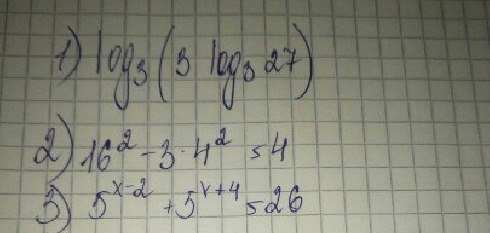 1) log₃(3 log₃ 27)
2) 16² - 3 · 4² = 4
3) 5ˣ⁻² + 5ˣ⁺⁴ = 26